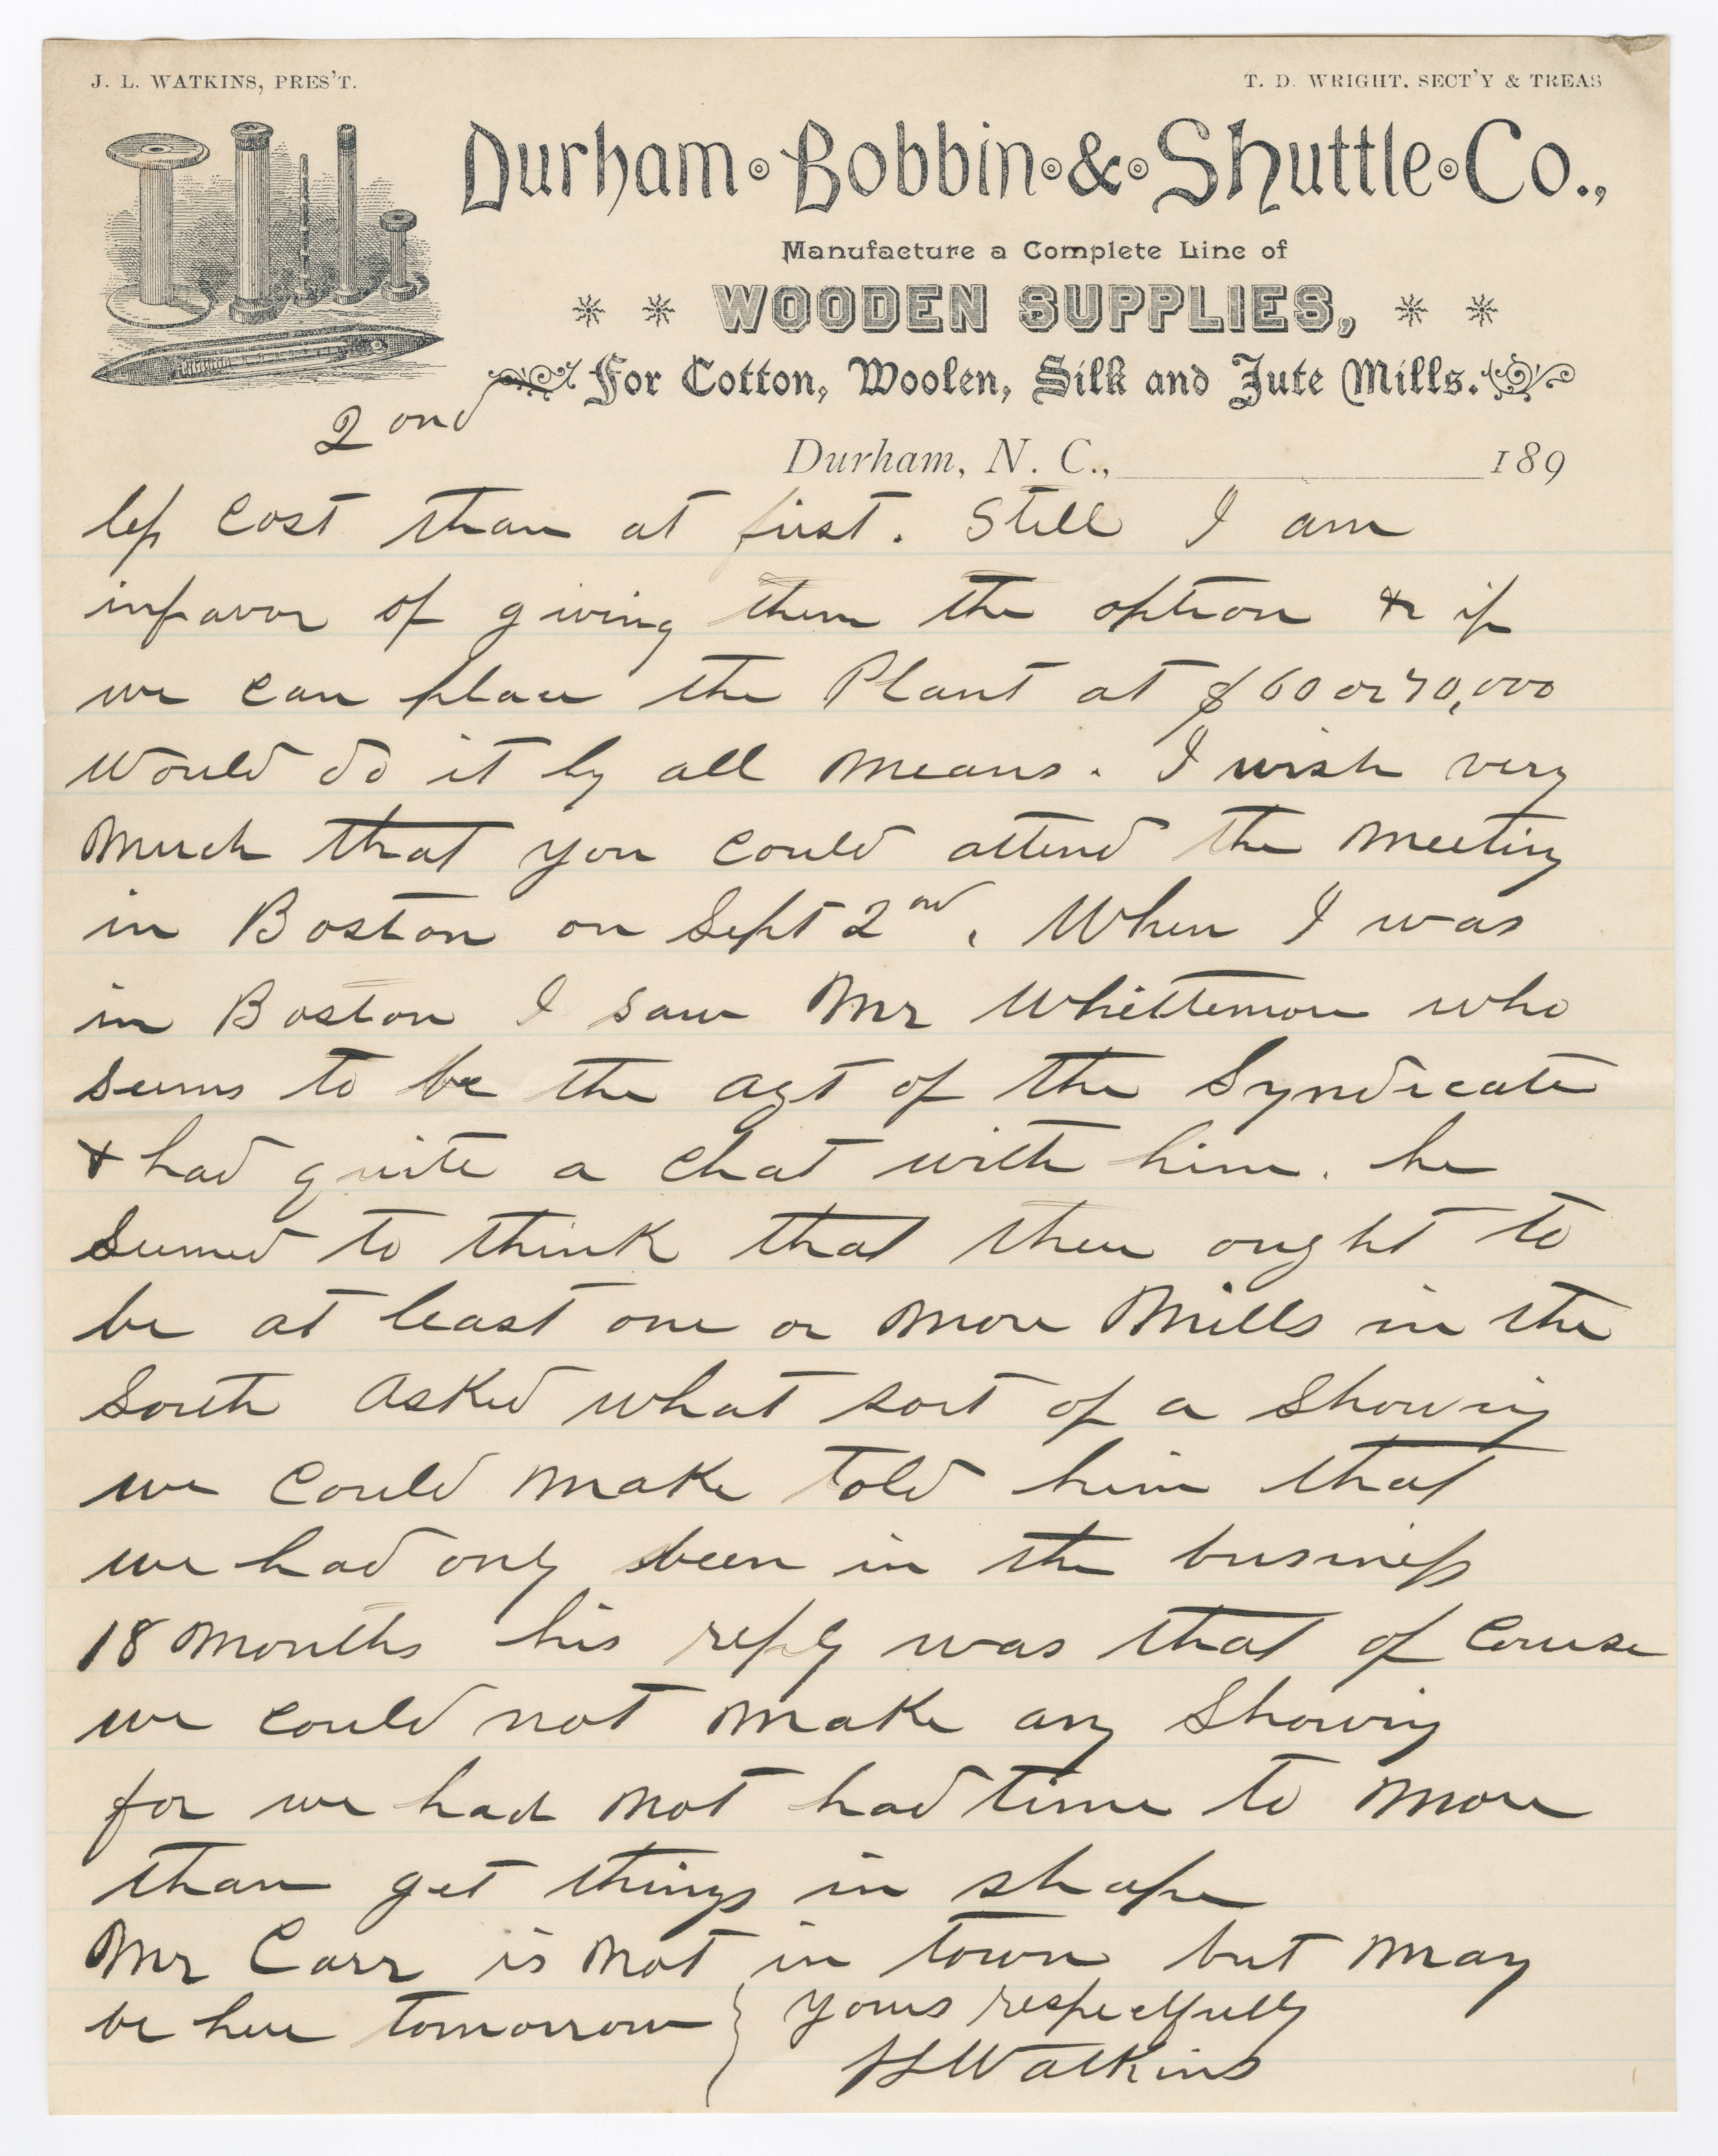 J. L. WATKINS, PRES'T.
T. D. WRIGHT, SECT'Y & TREAS
Durham Bobbin & Shuttle Co.,
Manufacture a Complete Line of
WOODEN SUPPLIES,
For Cotton, Woolen, Silk and Jute Mills.
2ond
Durham, N. C., 189
less cost than at first. Still I am
infavor of giving them the option & if
we can place the Plant at $60 or 70,000
would do it by all means. I wish very
much that you could attend the meeting
in Boston on Sept 2nd. When I was
in Boston I saw Mr Whittemore who
seems to be the agt of the Syndicate
& had quite a chat with him. he
seemed to think that there ought to
be at least one or more Mills in the
South asked what sort of a showing
we could make told him that
we had only been in the business
18 months his reply was that of course
we could not make any showing
for we had not had time to more
than get things in shape
Mr Carr is not in town but may
be here tomorrow } yours respectfully
JLWatkins